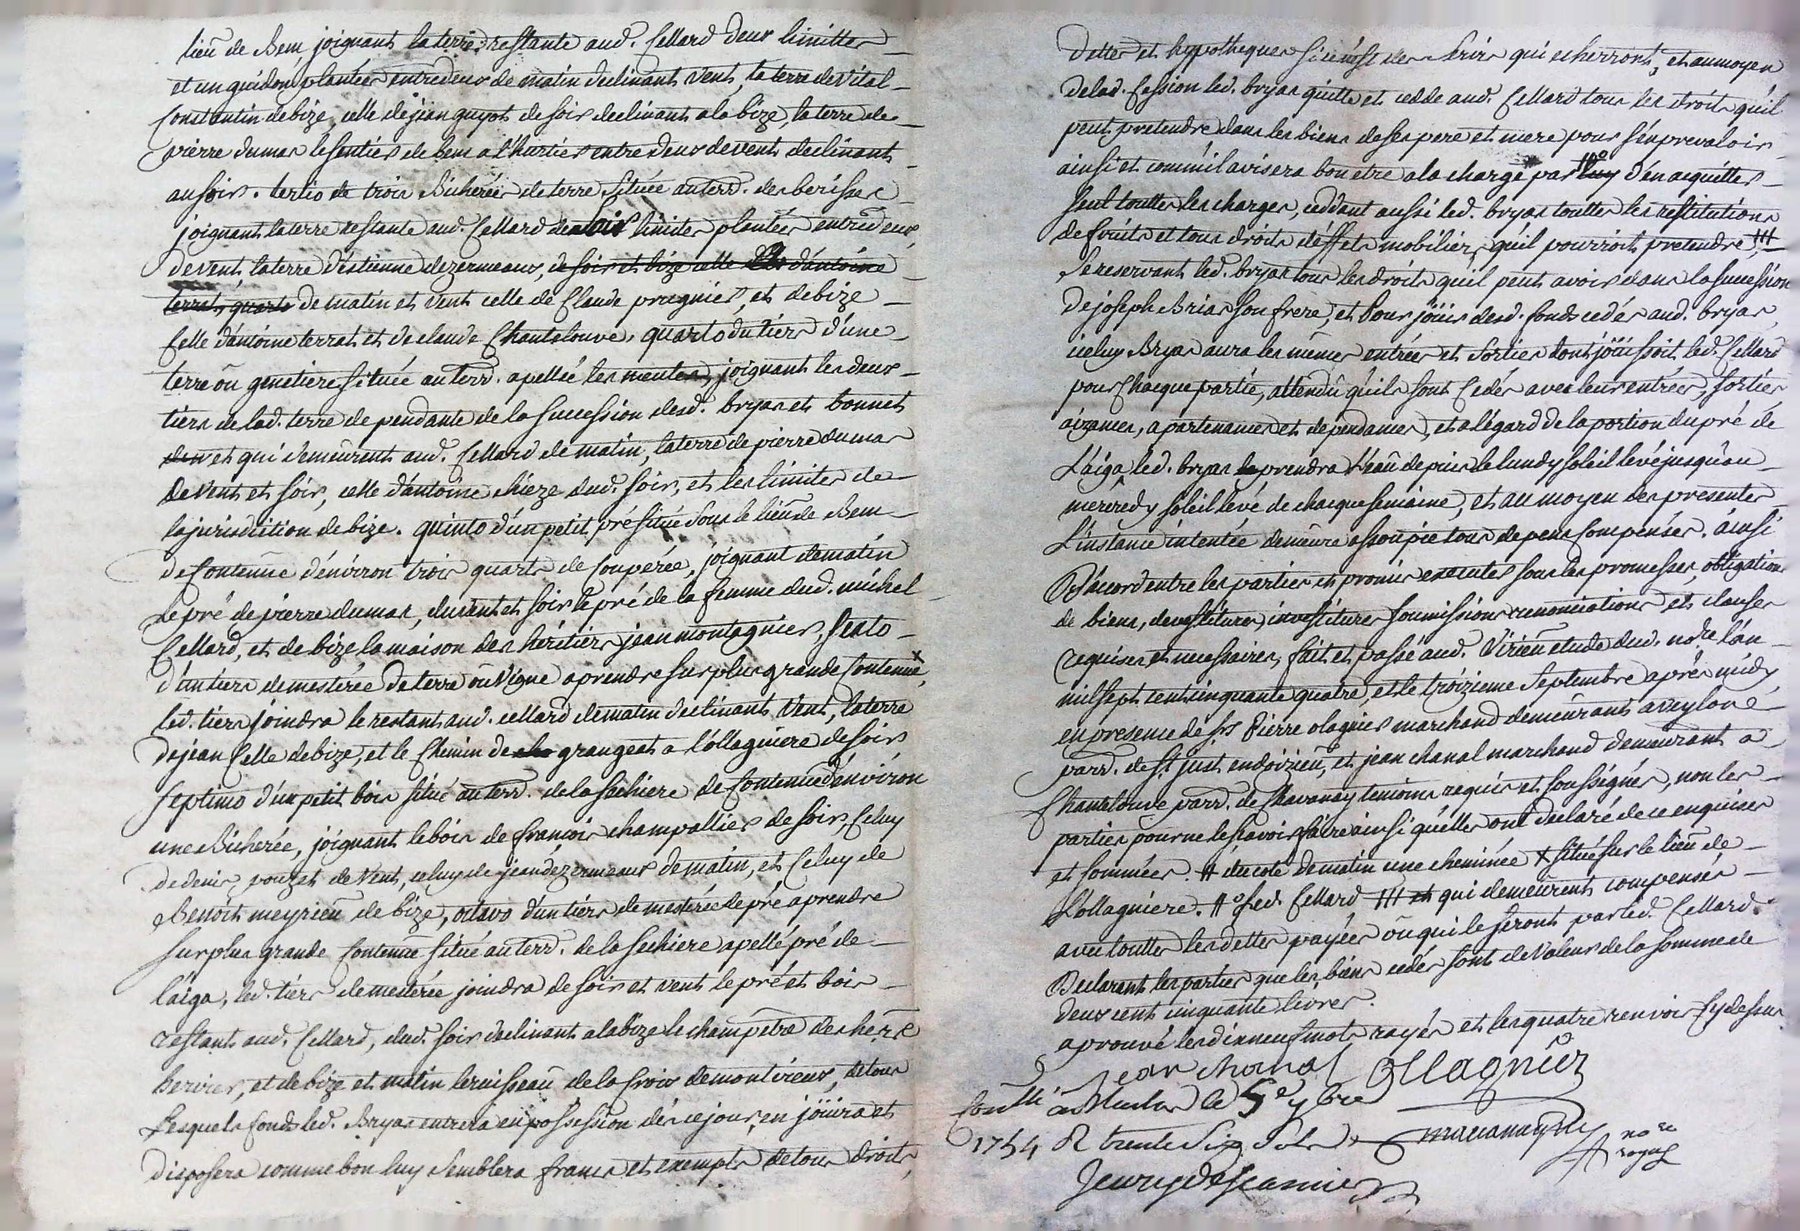 lieu de Bem joignant la terre restante aud. Cellard deux limittes
et un guidon plantées entredeux de matin declinant vent, la terre de vital
Constantin de bize, celle de jean guyot de soir declinant a la bize, la terre de
pierre dumas le sentier de bem a l'hurtier entre deux de vent declinant
au soir. tertio de trois Bicherées de terre située au terr. des berisses
joignant la terre restante aud. Cellard de soir limites plantées entredeux,
de vent la terre d'estienne dezermeaux, de soir et bize celle d'antoine
terrat, quarto de matin et vent celle de Claude pragnier, et de bize
Celle d'antoine terrat et de claude Chantelouve. quarto du tiers d'une
terre ou genetiere située au terr. apellée les mentes, joignant les deux
tiers de lad. terre dependante de la succession desd. bryas et bonnet
et qui demeurent aud. Cellard de matin, la terre de pierre dumas
de vent et soir, celle d'antoine chieze dud. soir, et les limites de
la jurisdiction de bize. quinto d'un petit pré situé sous le lieu de Bem
de Contenue d'environ trois quarts de Coupérée, joignant de matin
le pré de pierre dumas, du vent et soir le pré de la femme dud. michel
Cellard, et de bize la maison des heritiers jean montagnier, sexto
d'un tiers de mesterée de terre ou vigne a prendre sur plus grande Contenue, x
led. tiers joindra le restant aud. cellard de matin declinant vent, la terre
de jean Celle de bize, et le Chemin de grangeat a l'ollagniere de soir
septimo d'un petit bois situé au terr. de la sechiere de Contenue d'environ
une Bicherée, joignant le bois de francois champallier de soir, Celuy
de denis pouzet de vent, celuy de jean dezermeaux de matin, et Celuy de
Benoit meyrieu de bize, octavo d'un tiers de mesterée de pré a prendre
sur plus grande Contenue situé au terr. de la sechiere apellé pré de
l'aiga, led. tiers de mesterée joindra de soir et vent le pré et bois
restant aud. Cellard, dud. soir declinant a la bize le champ et ra des hers
bervier, et de bize et matin le ruisseau de la Croix de montvieux, de tous
lesquels fonds led. Bryas entrera en possession dés ce jour, en jouira et
disposera comme bon luy semblera francs et exempts de tous droits,
dettes et hypotheques si ce n'est des servis qui echerront, et au moyen
de lad. Cession led. bryas quitte et cedde aud. Cellard tous les droits qu'il
peut pretendre dans les biens de ses pere et mere pour s'en prevaloir
ainsi et comm'il avisera bon etre a la charge par luy d'en acquitter
seul touttes les charges, ceddant aussi led. bryas touttes les restitutions
de fruits et tous droits d'effets mobiliers, qu'il pourroit pretendre ###
se reservant led. bryas tous les droits qu'il peut avoir dans la succession
de joseph Brias son frere, et Pour jouir desd. fonds cedés aud. bryas,
iceluy Bryas aura les memes entrées et sorties dont jouissoit led. Cellard
pour Chacque partie, attendu qu'ils sont Cedés avec leurs entrées, sorties
aizances, apartenances et dependances, et a l'egard de la portion du pré de
L'aiga led. bryas prendra L'eau depuis le lundy soleil levé jusqu'au
mercredy soleil levé de chacque semaine, et au moyen des presentes
L'instance intentée demeure assoupie tous depens Compensés. ainsi
D'accord entre les parties et promis executer sous les promesses, obligations
de biens, devestitures, investitures soumissions renonciations et clauses
requises et necessaires, fait et passé aud. Virieu etude dud. nore. L'an
mil sept cent cinquante quatre, et le troizieme septembre aprés midy
en presence de srs Pierre olagnier marchand demeurant a veylore
parr. de st just en doizieu, et jean chanal marchand demeurant a
Chantelouve parr. de Chavanay temoins requis et soussignés, non les
parties pour ne le scavoir faire ainsi qu'elles ont declaré de ce enquises
et sommées. # du coté de matin une cheminée x situé sur le lieu de
L'ollagniere. #o led. Cellard ### et qui demeurent compensés
avec touttes les dettes payées ou qui le seront par led. Cellard.
Declarant les parties que les biens cedés sont de valeur de la somme de
deux cent cinquante livres.
aprouvé les dixneuf mots rayés et les quatre renvois Cy dessus
Jean chanal Ollagnier
Conllé a le 5e 7bre
1754 R trente six sols
nore
royal